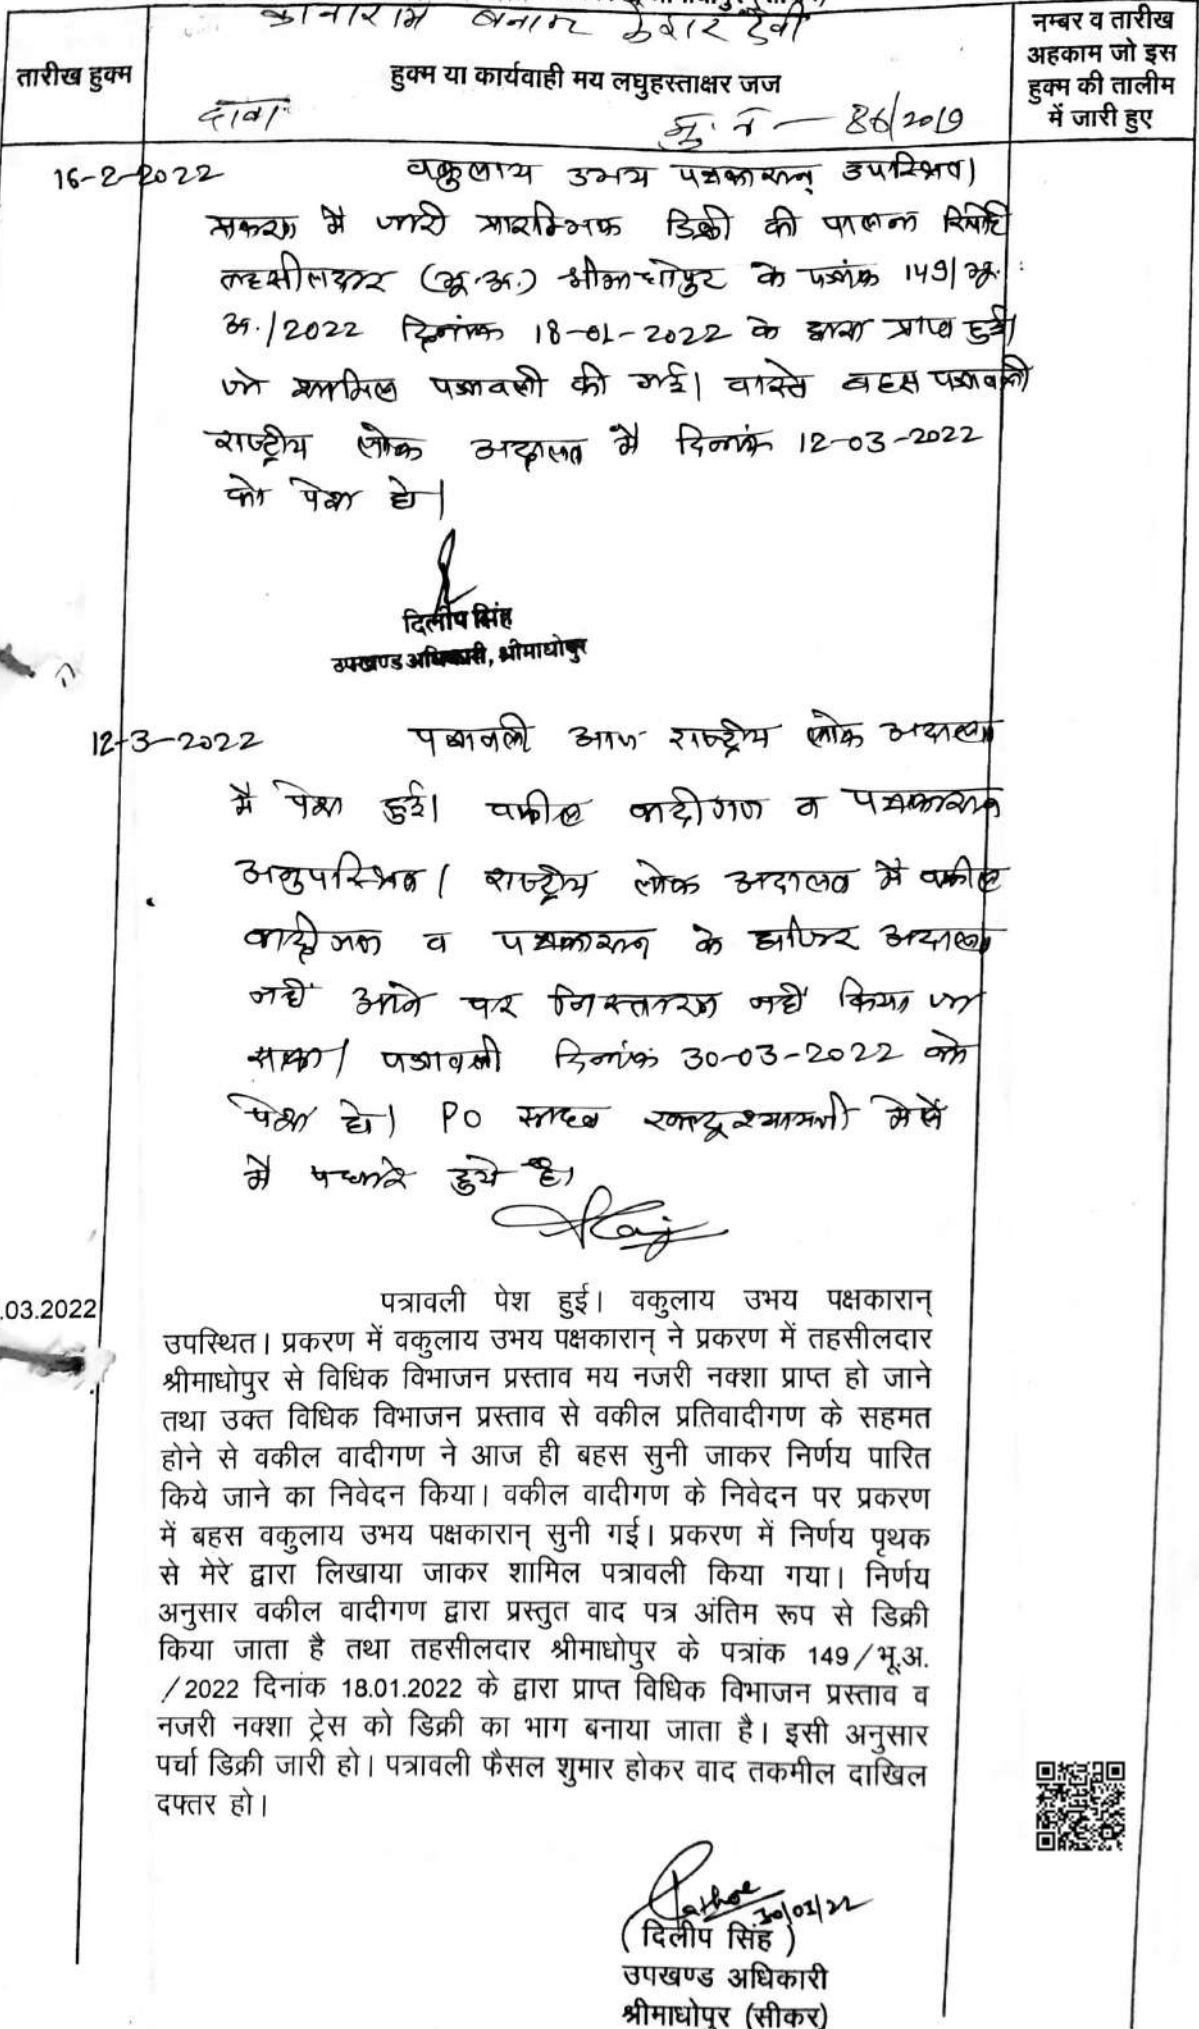 कानाराम बनाम केशर देवी
तारीख हुक्म
हुक्म या कार्यवाही मय लघुहस्ताक्षर जज
नम्बर व तारीख
अहकाम जो इस
हुक्म की तालीम
में जारी हुए
दावा
मु. नं — 86/2019
16-2-2022 वकुलाय उभय पक्षकारान् उपस्थित।
प्रकरण में जारी प्रारम्भिक डिक्री की पालना रिपोर्ट
तहसीलदार (भू.अ.) श्रीमाधोपुर के पत्रांक 149/भू.
अ./2022 दिनांक 18-01-2022 के द्वारा प्राप्त हुई।
जो शामिल पत्रावली की गई। वास्ते बहस पत्रावली
राष्ट्रीय लोक अदालत में दिनांक 12-03-2022
को पेश हो।
दिलीप सिंह
उपखण्ड अधिकारी, श्रीमाधोपुर
12-3-2022 पत्रावली आज राष्ट्रीय लोक अदालत
में पेश हुई। वकील वादीगण व पक्षकारान
अनुपस्थित। राष्ट्रीय लोक अदालत में वकील
वादीगण व पक्षकारान के हाजिर अदालत
नहीं आने पर निस्तारण नहीं किया जा
सका। पत्रावली दिनांक 30-03-2022 को
पेश हो। PO साहब खाटूश्यामजी मेले
में पधारे हुये है।
.03.2022 पत्रावली पेश हुई। वकुलाय उभय पक्षकारान्
उपस्थित। प्रकरण में वकुलाय उभय पक्षकारान् ने प्रकरण में तहसीलदार
श्रीमाधोपुर से विधिक विभाजन प्रस्ताव मय नजरी नक्शा प्राप्त हो जाने
तथा उक्त विधिक विभाजन प्रस्ताव से वकील प्रतिवादीगण के सहमत
होने से वकील वादीगण ने आज ही बहस सुनी जाकर निर्णय पारित
किये जाने का निवेदन किया। वकील वादीगण के निवेदन पर प्रकरण
में बहस वकुलाय उभय पक्षकारान् सुनी गई। प्रकरण में निर्णय पृथक
से मेरे द्वारा लिखाया जाकर शामिल पत्रावली किया गया। निर्णय
अनुसार वकील वादीगण द्वारा प्रस्तुत वाद पत्र अंतिम रूप से डिक्री
किया जाता है तथा तहसीलदार श्रीमाधोपुर के पत्रांक 149/भू.अ.
/2022 दिनांक 18.01.2022 के द्वारा प्राप्त विधिक विभाजन प्रस्ताव व
नजरी नक्शा ट्रेस को डिक्री का भाग बनाया जाता है। इसी अनुसार
पर्चा डिक्री जारी हो। पत्रावली फैसल शुमार होकर वाद तकमील दाखिल
दफ्तर हो।
30/03/22
(दिलीप सिंह)
उपखण्ड अधिकारी
श्रीमाधोपुर (सीकर)